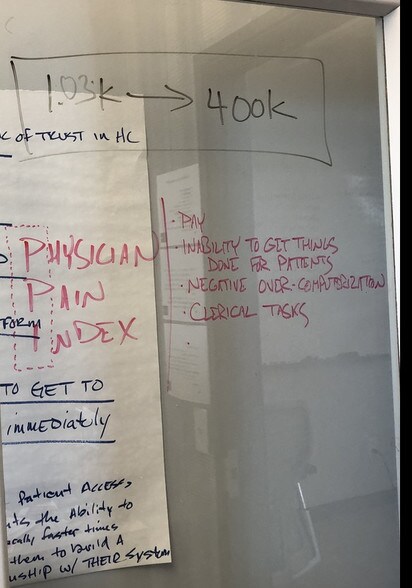 1.03k → 400k
OF TRUST IN HC
PHYSICIAN
PAIN
INDEX
· PAY
· INABILITY TO GET THINGS
DONE FOR PATIENTS
· NEGATIVE OVER-COMPUTERIZATION
· CLERICAL TASKS
·
FORM
TO GET TO
immediately
Patient Access
the Ability to
faster times
them to build A
W/ THEIR System